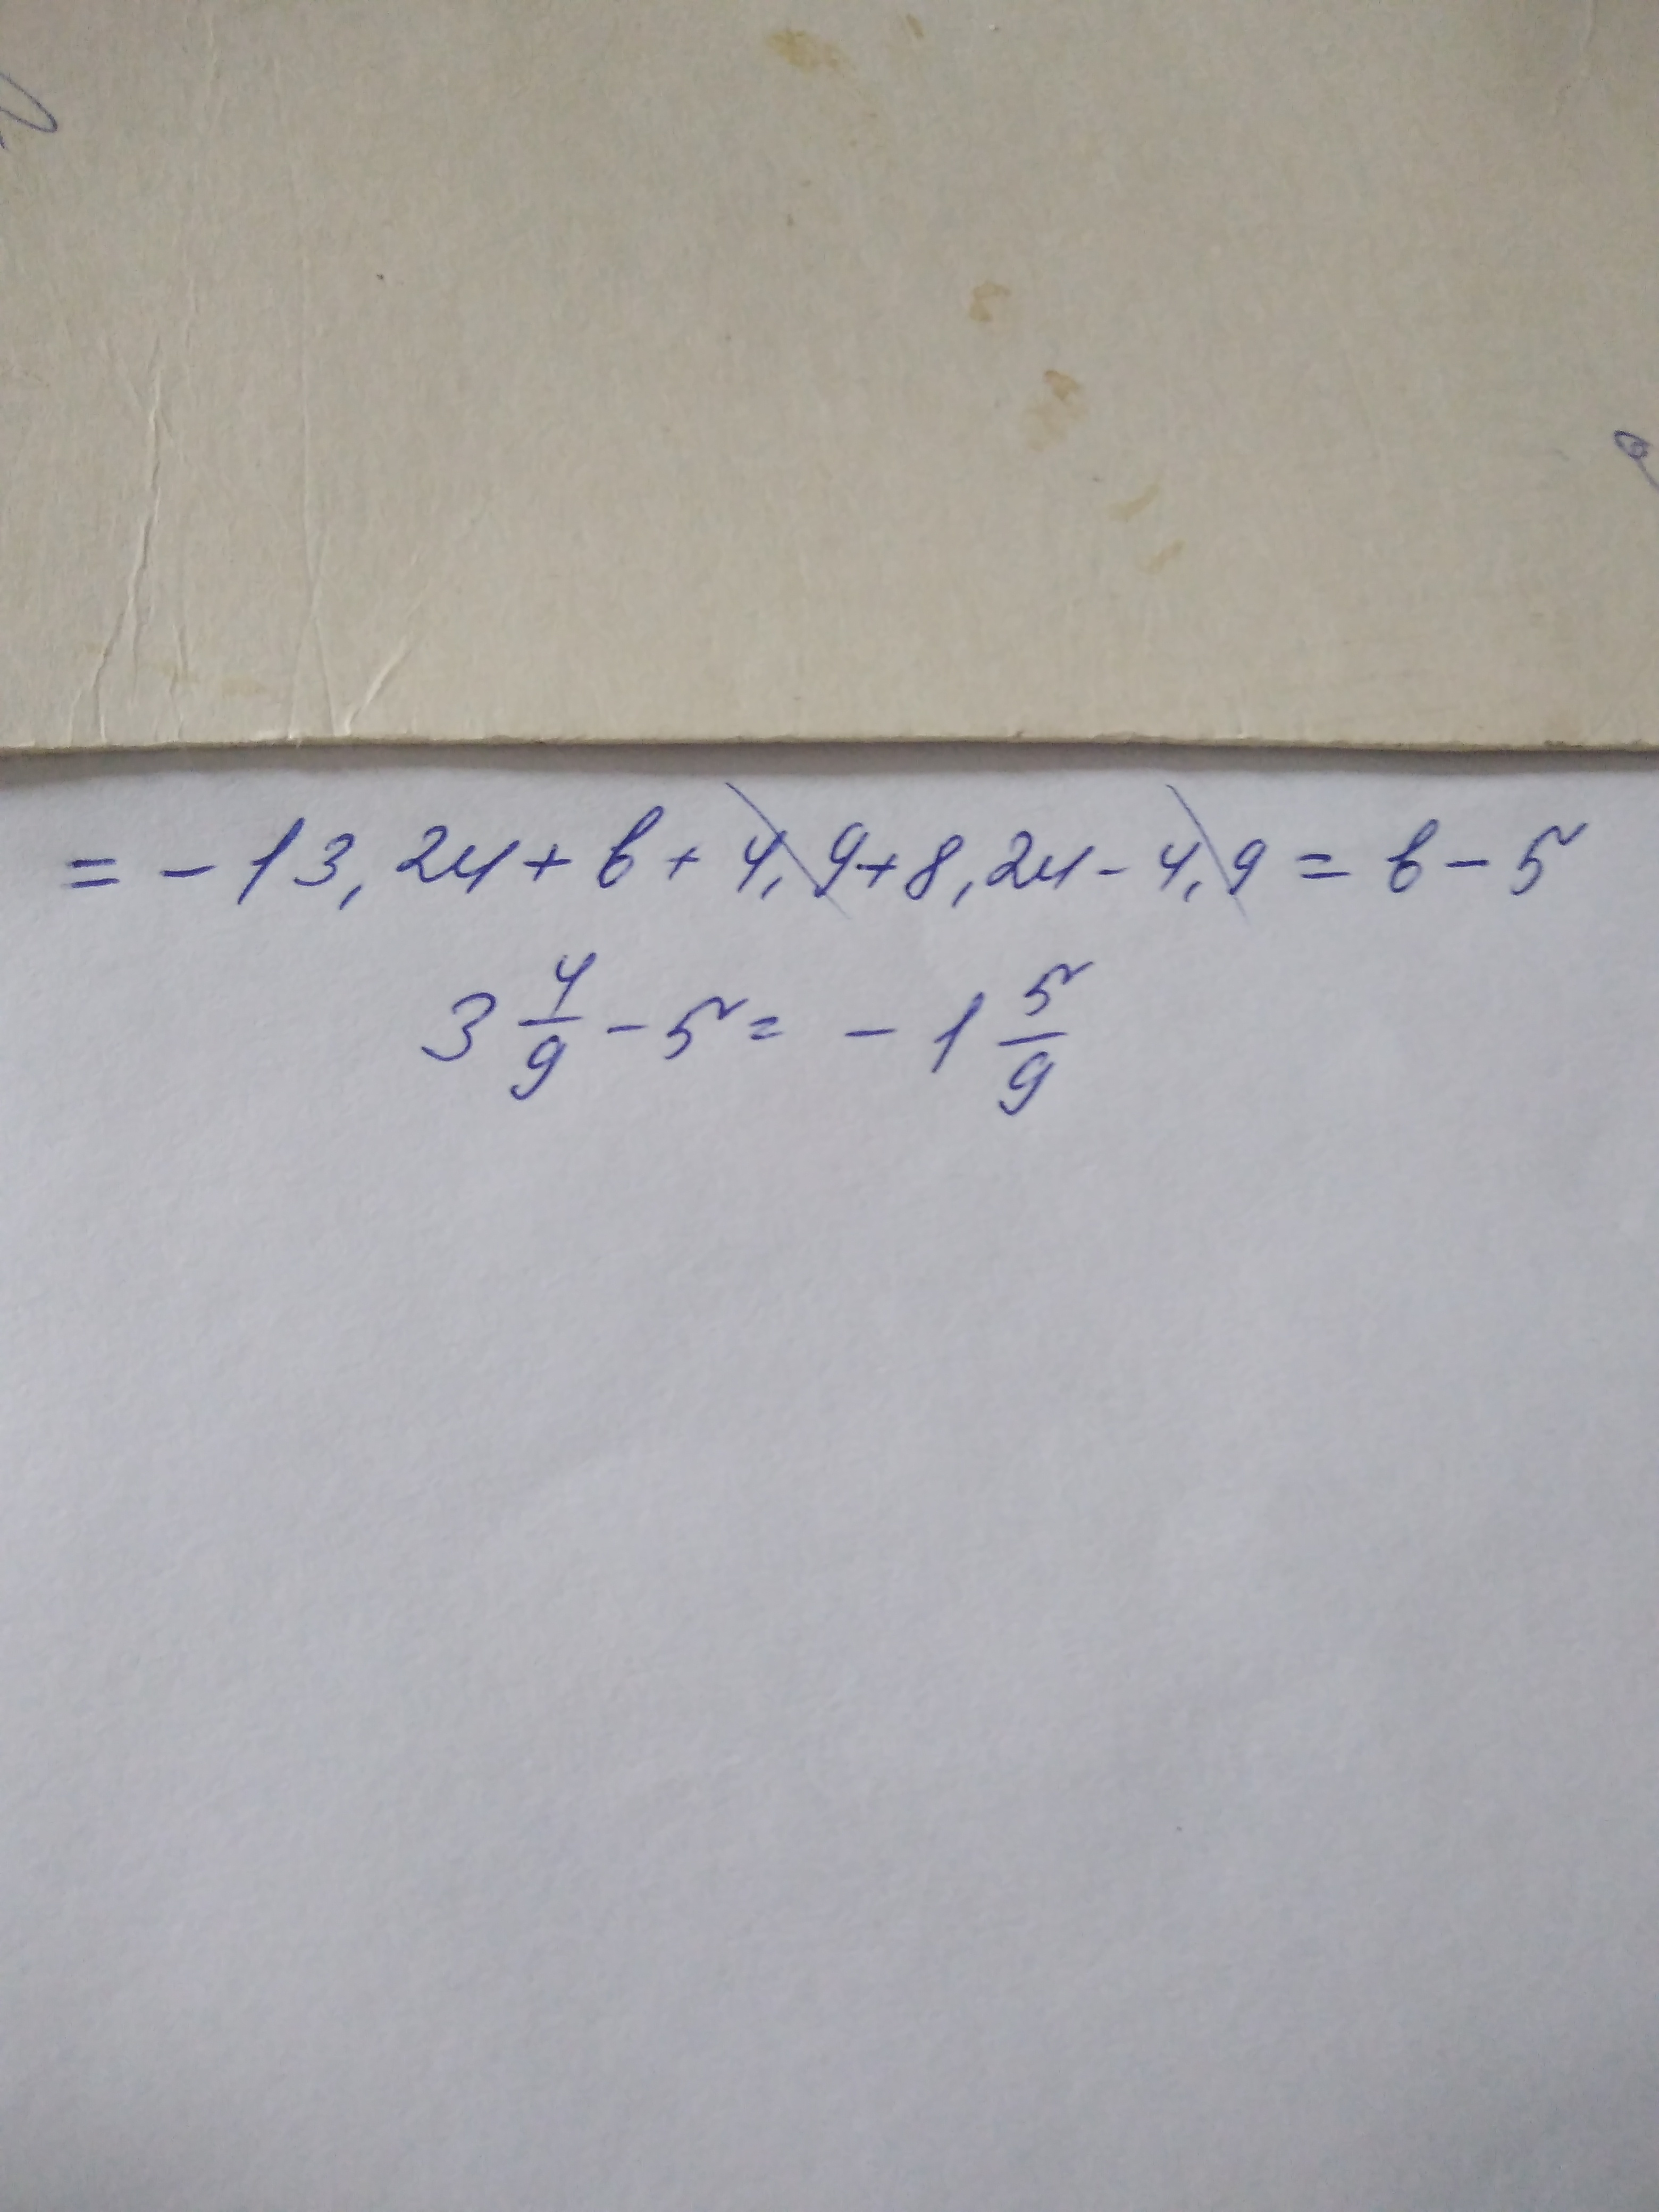 = - 13,24 + b + 4,9 + 8,24 - 4,9 = b - 5
3 4/9 - 5 = - 1 5/9